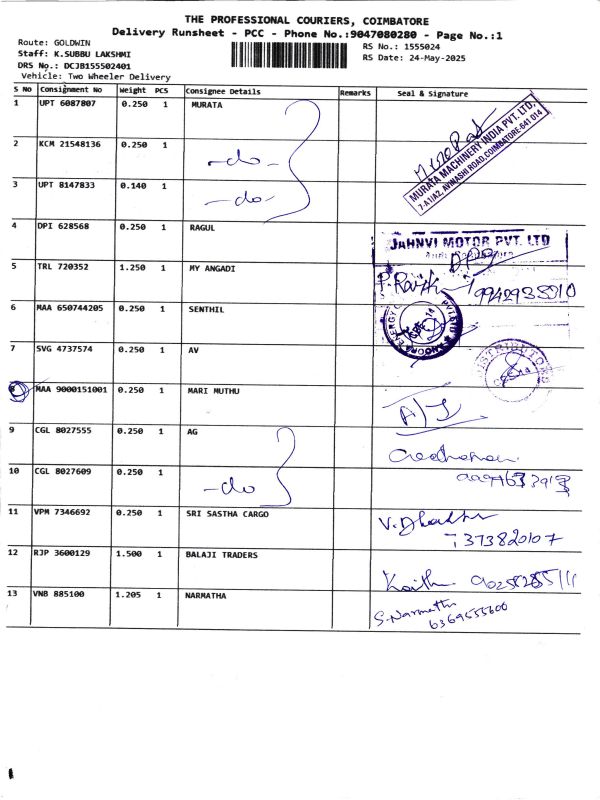 THE PROFESSIONAL COURIERS, COIMBATORE
Delivery Runsheet - PCC - Phone No.:9047080280 - Page No.:1
Route: GOLDWIN
Staff: K.SUBBU LAKSHMI
DRS No.: DCJB155502401
Vehicle: Two Wheeler Delivery
RS No.: 1555024
RS Date: 24-May-2025
S No Consignment No Weight PCS Consignee Details Remarks Seal & Signature
1 UPT 6087807 0.250 1 MURATA
MURATA MACHINERY INDIA PVT. LTD.
7-A1/A2, AVINASHI ROAD, COIMBATORE-641 014
2 KCM 21548136 0.250 1 -do-
3 UPT 8147833 0.140 1 -do-
4 DPI 628568 0.250 1 RAGUL
JAHNVI MOTOR PVT. LTD
5 TRL 720352 1.250 1 MY ANGADI
9942935510
6 MAA 650744205 0.250 1 SENTHIL
7 SVG 4737574 0.250 1 AV
8 MAA 9000151001 0.250 1 MARI MUTHU
9 CGL 8027555 0.250 1 AG
10 CGL 8027609 0.250 1 -do
11 VPM 7346692 0.250 1 SRI SASTHA CARGO
7373820107
12 RJP 3600129 1.500 1 BALAJI TRADERS
13 VNB 885100 1.205 1 NARMATHA
S.Narmatha
6369555600